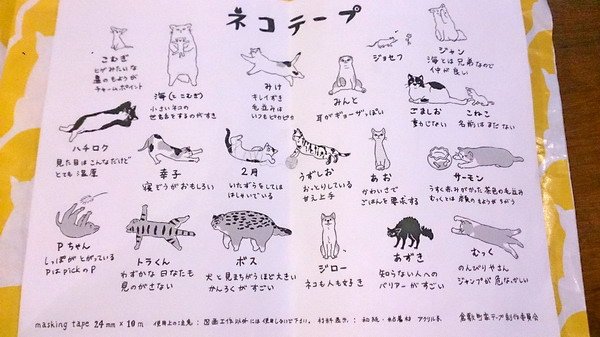 ネコテープ
こむぎ
ヒゲみたいな
鼻のもようが
チャームポイント
海(とこむぎ)
小さいネコの
世話をするのがすき
みけ
キレイずき
毛並みは
いつもピカピカ
みんと
耳がギョーザっぽい
ジョセフ
ジャン
海とは兄弟なので
仲が良い
ごましお
動じない
こねこ
名前はまだない
ハチロク
見た目はこんなだけど
とても温厚
幸子
寝ぞうがおもしろい
2月
いたずらをしては
はしゃいでいる
うずしお
おっとりしている
甘え上手
あお
かわいさで
ごはんを要求する
サーモン
うすく赤みがかった茶色の毛並み
むっくとは鼻のもようがちがう
Pちゃん
しっぽがとがっている
PはPickのP
トラくん
わずかな日なたも
見のがさない
ボス
犬と見まちがうほど大きい
かんろくがすごい
ジロー
ネコも人も好き
あずき
知らない人への
バリアーがすごい
むっく
のんびりやさん
ジャンプが危なっかしい
masking tape 24mm×10m 使用上の注意:図画工作以外には使用しないで下さい。材料表示:和紙・粘着材 アクリル系
倉敷町家テープ制作委員会